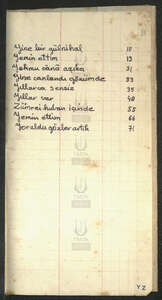 Yine bir gülnihal 10
Yemin ettim 13
Yekau sana aşıka 21
Yine canlandı gözümde 33
Yıllarca sensiz 35
Yıllar var 40
Zümrei huban içinde 55
Yemin ettim 66
Yoruldu gözler artık 71
Y Z